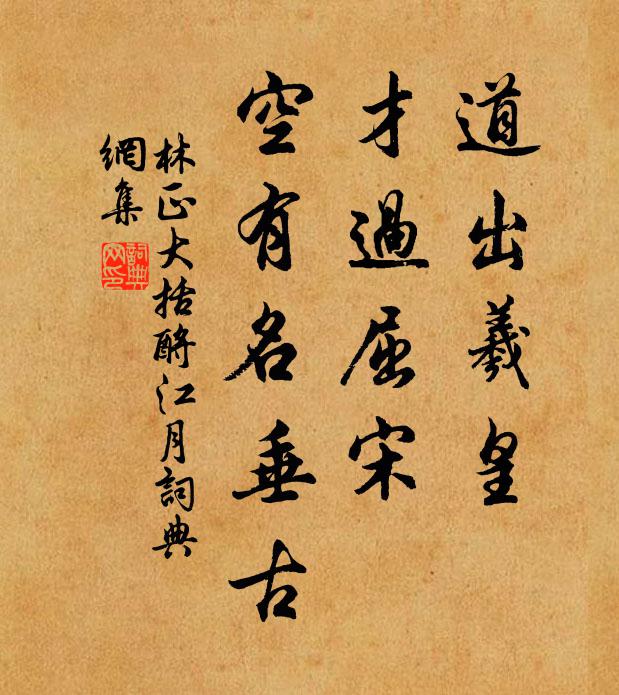 道出羲皇
才過屈宋
空有名垂古
林正大括酹江月詞典
網集
詞典
网印